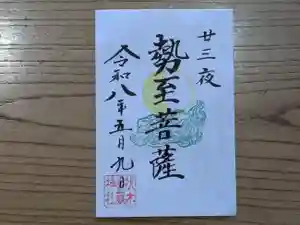 廿三夜
勢至菩薩
令和八年五月九日